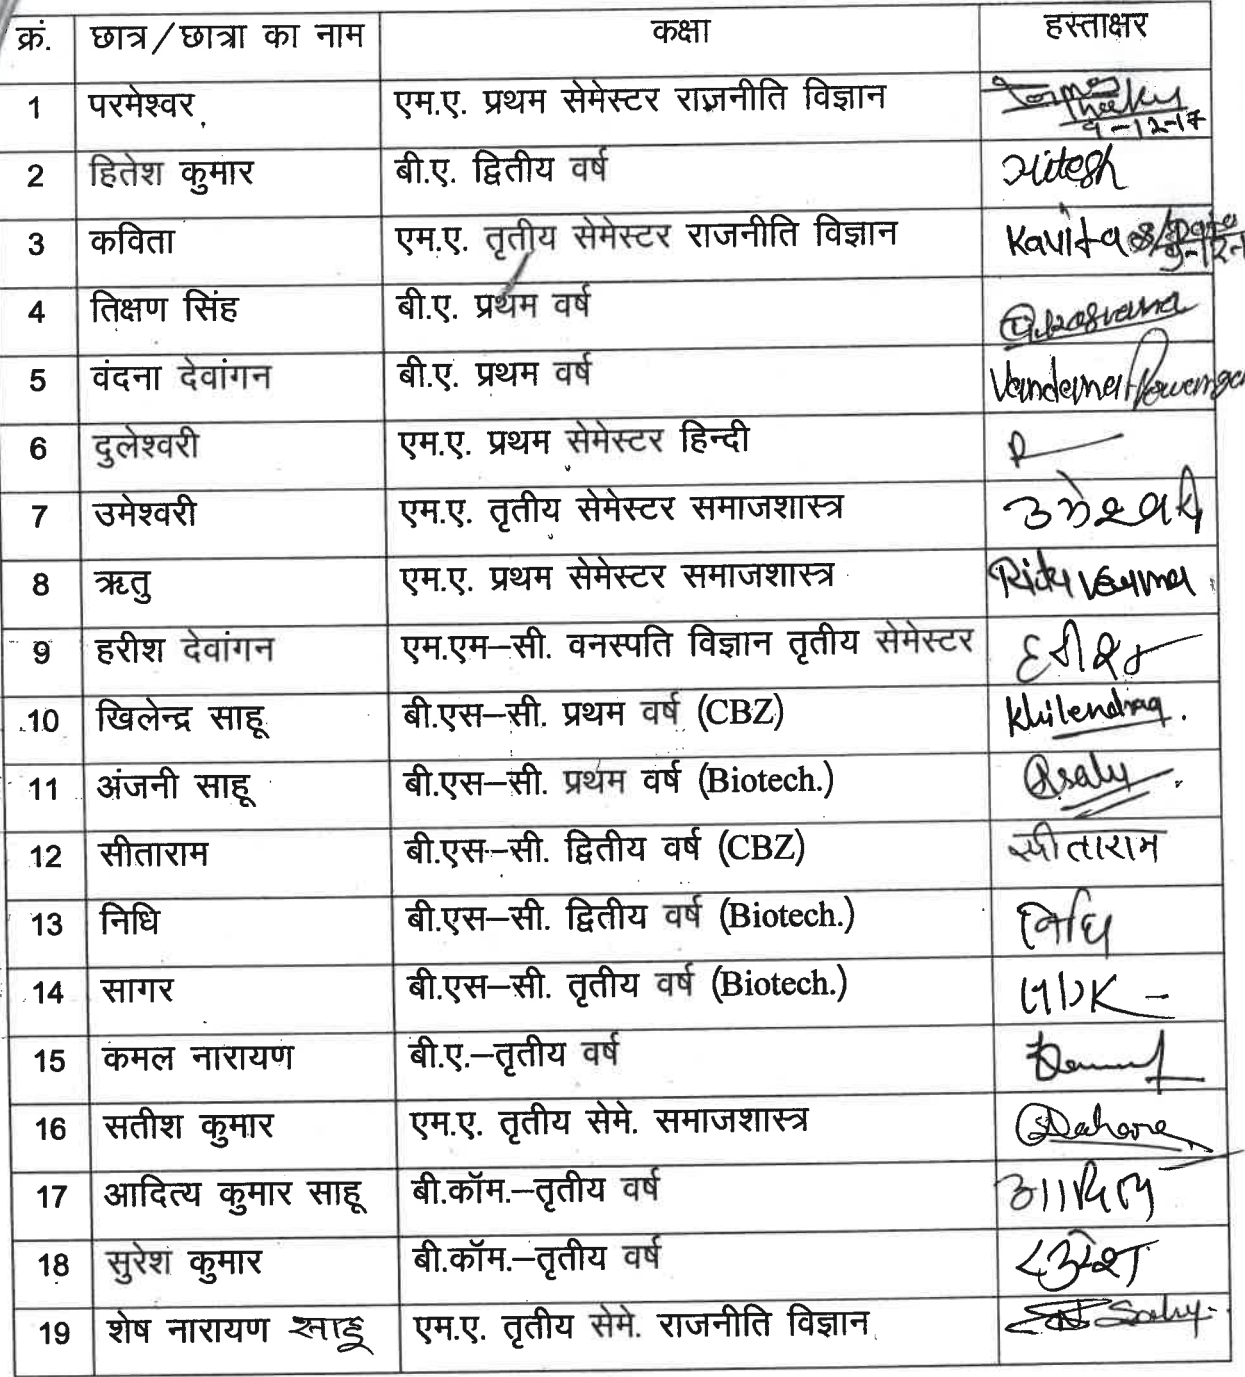 क्रं. छात्र/छात्रा का नाम कक्षा हस्ताक्षर
1 परमेश्वर एम.ए. प्रथम सेमेस्टर राजनीति विज्ञान 9-12-17
2 हितेश कुमार बी.ए. द्वितीय वर्ष Hitesh
3 कविता एम.ए. तृतीय सेमेस्टर राजनीति विज्ञान Kavita
4 तिक्षण सिंह बी.ए. प्रथम वर्ष
5 वंदना देवांगन बी.ए. प्रथम वर्ष Vandana Dewangan
6 दुलेश्वरी एम.ए. प्रथम सेमेस्टर हिन्दी
7 उमेश्वरी एम.ए. तृतीय सेमेस्टर समाजशास्त्र उमेश्वरी
8 ऋतु एम.ए. प्रथम सेमेस्टर समाजशास्त्र Ritu Verma
9 हरीश देवांगन एम.एम–सी. वनस्पति विज्ञान तृतीय सेमेस्टर हरीश
10 खिलेन्द्र साहू बी.एस–सी. प्रथम वर्ष (CBZ) Khilendra
11 अंजनी साहू बी.एस–सी. प्रथम वर्ष (Biotech.)
12 सीताराम बी.एस–सी. द्वितीय वर्ष (CBZ) सीताराम
13 निधि बी.एस–सी. द्वितीय वर्ष (Biotech.) निधि
14 सागर बी.एस–सी. तृतीय वर्ष (Biotech.)
15 कमल नारायण बी.ए.–तृतीय वर्ष
16 सतीश कुमार एम.ए. तृतीय सेमे. समाजशास्त्र
17 आदित्य कुमार साहू बी.कॉम.–तृतीय वर्ष आदित्य
18 सुरेश कुमार बी.कॉम.–तृतीय वर्ष सुरेश
19 शेष नारायण साहू एम.ए. तृतीय सेमे. राजनीति विज्ञान Sahu